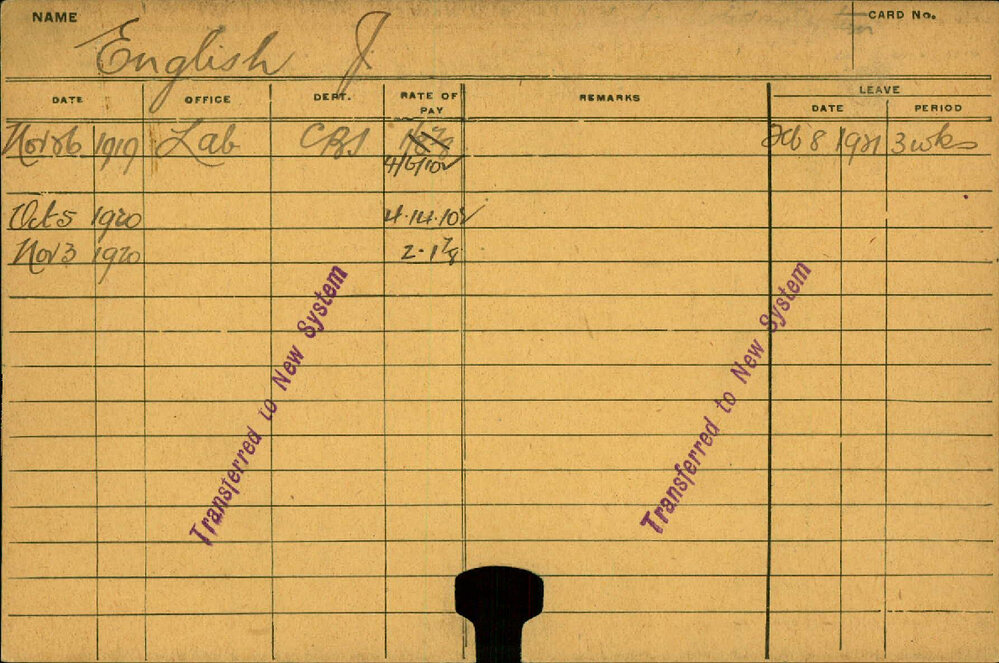 NAME English J CARD No.
DATE OFFICE DEPT. RATE OF PAY REMARKS LEAVE
DATE PERIOD
Nov 26 1919 Lab CBS Feb 8 1921 3 wks
4/6/10½
Oct 5 1920 4.14.10½
Nov 3 1920 2.1⅞
Transferred to New System
Transferred to New System